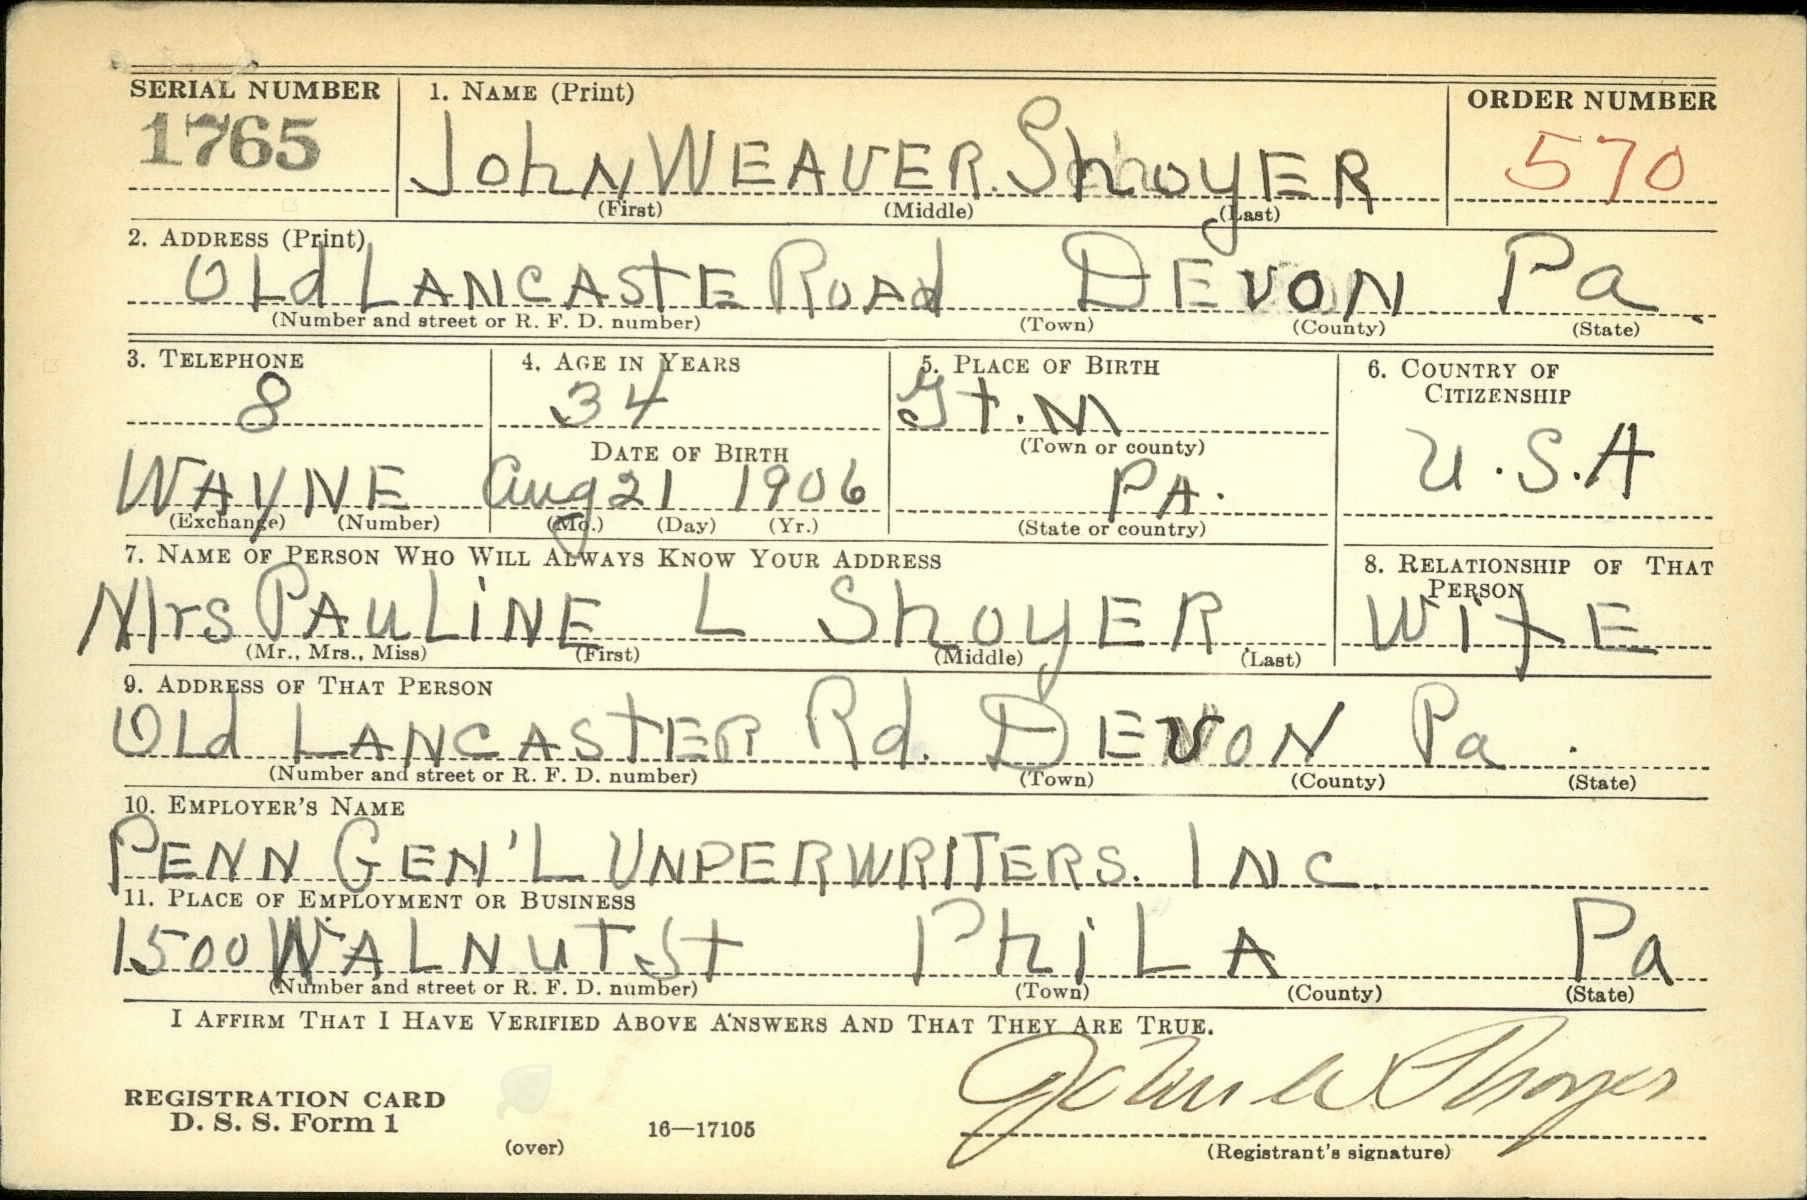 SERIAL NUMBER 1. NAME (Print) ORDER NUMBER
1765 JOhN WEAVER ShoyER 570
(First) (Middle) (Last)
2. ADDRESS (Print)
OLd LANCASTE ROAd DEVON Pa.
(Number and street or R. F. D. number) (Town) (County) (State)
3. TELEPHONE 4. AGE IN YEARS 5. PLACE OF BIRTH 6. COUNTRY OF CITIZENSHIP
8 34 Gt.N
DATE OF BIRTH (Town or county) U.S.A
WAYNE Aug 21 1906 PA.
(Exchange) (Number) (Mo.) (Day) (Yr.) (State or country)
7. NAME OF PERSON WHO WILL ALWAYS KNOW YOUR ADDRESS 8. RELATIONSHIP OF THAT PERSON
Mrs PAULiNE L ShoyER WifE
(Mr., Mrs., Miss) (First) (Middle) (Last)
9. ADDRESS OF THAT PERSON
OLd LANCASTER Rd. DEVON Pa.
(Number and street or R. F. D. number) (Town) (County) (State)
10. EMPLOYER'S NAME
PENN GEN'L UNDERWRITERS. INC.
11. PLACE OF EMPLOYMENT OR BUSINESS
1500 WALNUT St PhiLA Pa
(Number and street or R. F. D. number) (Town) (County) (State)
I AFFIRM THAT I HAVE VERIFIED ABOVE ANSWERS AND THAT THEY ARE TRUE.
John W Shoyer
REGISTRATION CARD
D. S. S. Form 1 16—17105
(over) (Registrant's signature)